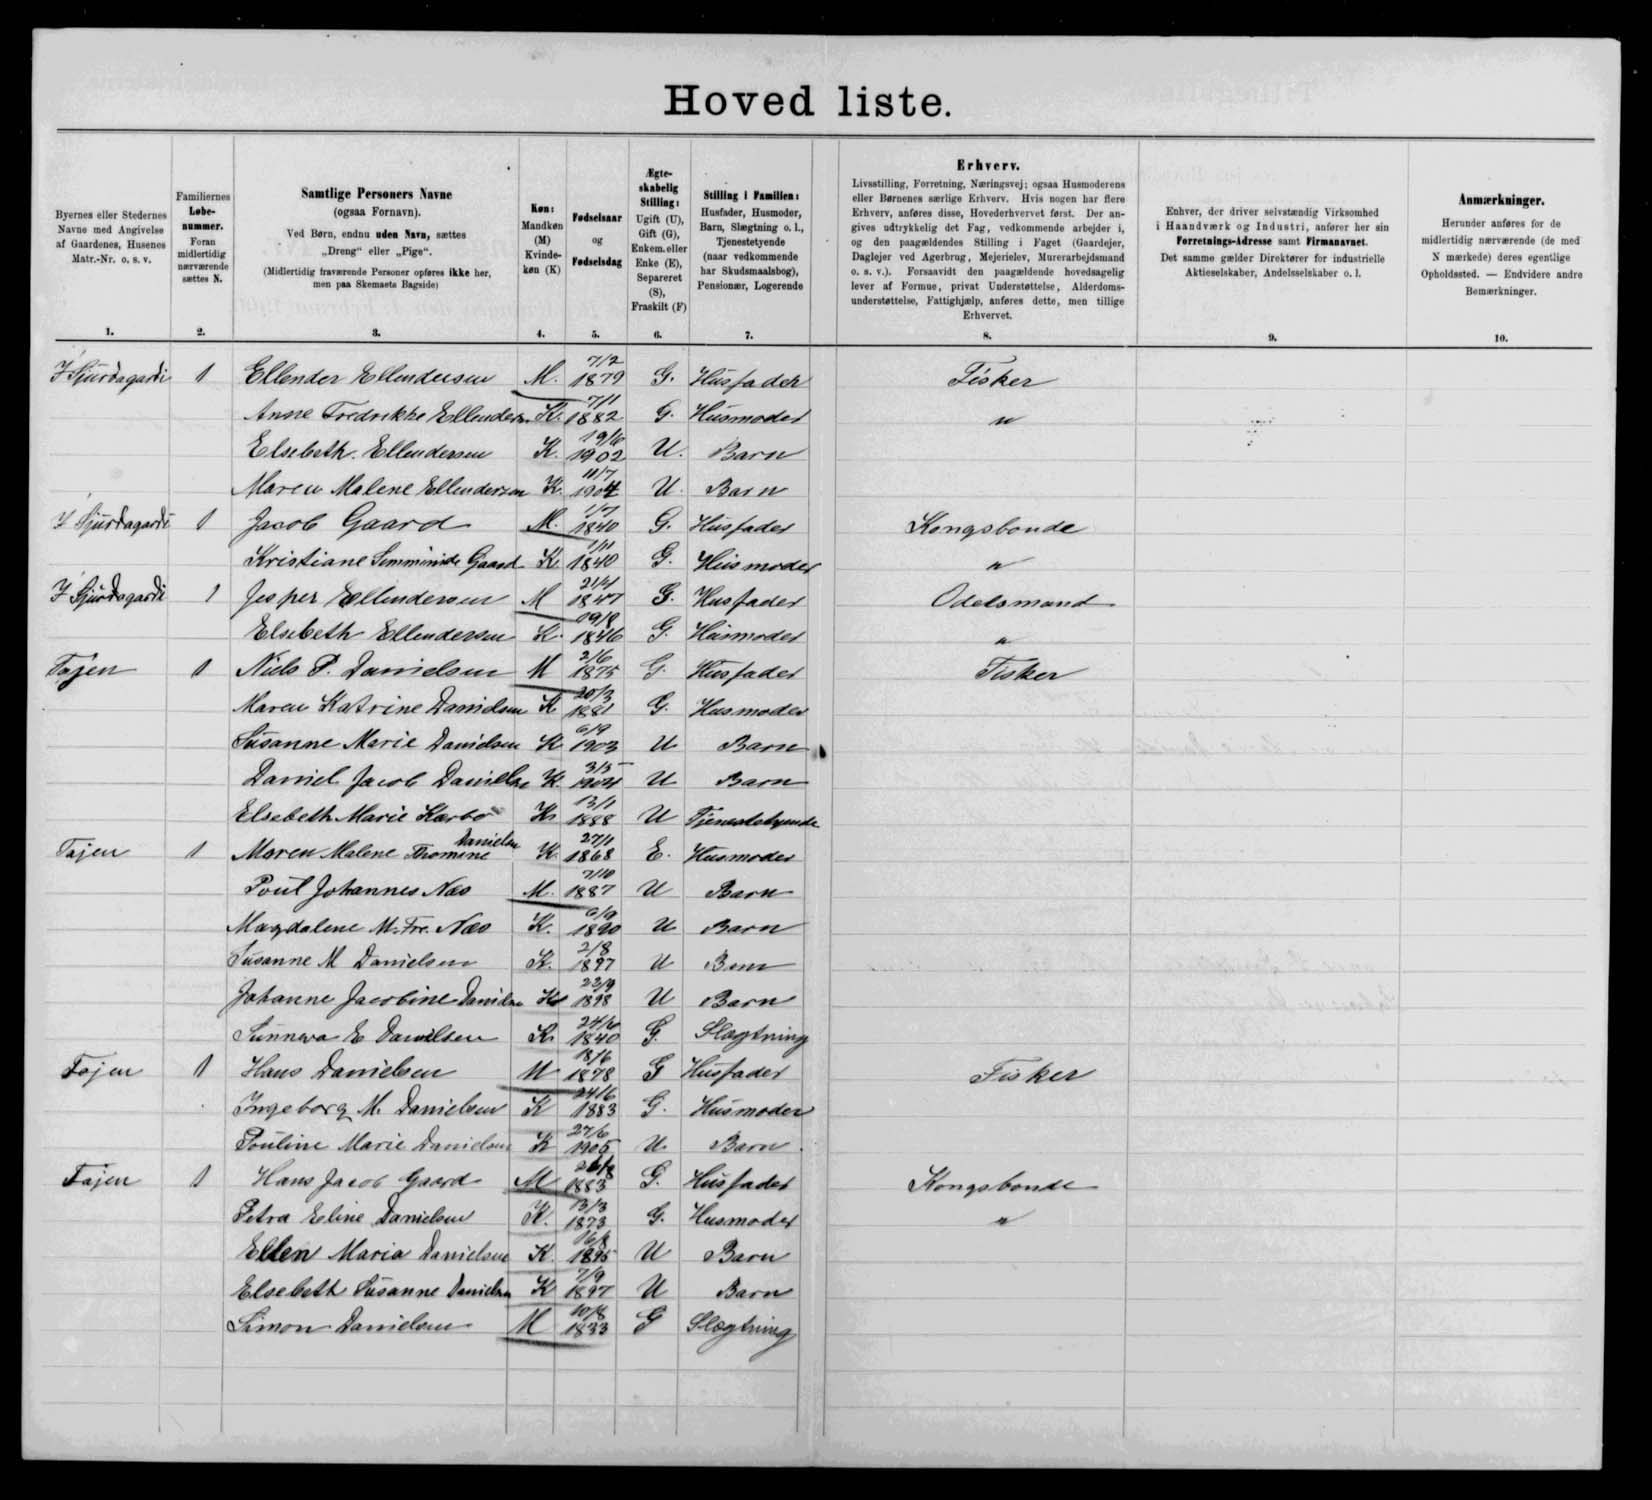 Hoved liste.
Byernes eller Stedernes Navne med Angivelse af Gaardenes, Husenes Matr.-Nr. o. s. v.
Familiernes Løbe-nummer. Foran midlertidig nærværende sættes N.
Samtlige Personers Navne
(ogsaa Fornavn).
Ved Børn, endnu uden Navn, sættes
„Dreng“ eller „Pige“.
(Midlertidig fraværende Personer opføres ikke her,
men paa Skemaets Bagside)
Køn:
Mandkøn
(M)
Kvinde-
køn (K)
Fødselsaar
og
Fødselsdag
Ægte-
skabelig
Stilling:
Ugift (U),
Gift (G),
Enkem. eller
Enke (E),
Separeret
(S),
Fraskilt (F)
Stilling i Familien:
Husfader, Husmoder,
Barn, Slægtning o. l.,
Tjenestetyende
(naar vedkommende
har Skudsmaalsbog),
Pensionær, Logerende
Erhverv.
Livsstilling, Forretning, Næringsvej; ogsaa Husmoderens
eller Børnenes særlige Erhverv. Hvis nogen har flere
Erhverv, anføres disse, Hovederhvervet først. Der an-
gives udtrykkelig det Fag, vedkommende arbejder i,
og den paagældendes Stilling i Faget (Gaardejer,
Daglejer ved Agerbrug, Mejerielev, Murerarbejdsmand
o. s. v.). Forsaavidt den paagældende hovedsagelig
lever af Formue, privat Understøttelse, Alderdoms-
understøttelse, Fattighjælp, anføres dette, men tillige
Erhvervet.
Enhver, der driver selvstændig Virksomhed
i Haandværk og Industri, anfører her sin
Forretnings-Adresse samt Firmanavnet.
Det samme gælder Direktører for industrielle
Aktieselskaber, Andelsselskaber o. l.
Anmærkninger.
Herunder anføres for de
midlertidig nærværende (de med
N mærkede) deres egentlige
Opholdssted. — Endvidere andre
Bemærkninger.
1. 2. 3. 4. 5. 6. 7. 8. 9. 10.
I Sjúrdagardi 1 Ellender Ellendersen M. 7/2 1879 G. Husfader Fisker
Anne Fredrikke Ellendersen K. 7/1 1882 G. Husmoder "
Elsebeth. Ellendersen K. 1902 U. Barn
Maren Malene Ellendersen K. 11/7 1904 U. Barn
I Sjúrdagardi 1 Jacob Gaard M. 1/7 1840 G. Husfader Kongsbonde
Kristiane Gaard K. 1/11 1840 G. Husmoder "
I Sjúrdagardi 1 Jesper Ellendersen M 1847 G. Husfader Odelsmand
Elsebeth Ellendersen K. 19/8 1846 G. Husmoder "
Tøjen 1 Niels P. Danielsen M 2/6 1875 G. Husfader Fisker
Maren Katrine Danielsen K 20/3 1881 G. Husmoder
Susanne Marie Danielsen K 6/9 1903 U Barn
Daniel Jacob Danielsen K. 3/5 1904 U Barn
Elsebeth Marie K 13/1 1888 U Tjenestetyende
Tøjen 1 Maren Malene Thomine Danielsen K. 27/1 1868 E. Husmoder
Poul Johannes Næs M. 7/10 1887 U Barn
Magdalene M. Fre. Næs K. 6/9 1890 U Barn
Susanne M Danielsen K. 2/8 1897 U Barn
Johanne Jacobine Danielsen K 23/9 1898 U Barn
Sunneva E Danielsen K. 24/6 1840 G. Slægtning
Tøjen 1 Hans Danielsen M 18/6 1878 G Husfader Fisker
Ingeborg M. Danielsen K 24/6 1883 G. Husmoder
Pouline Marie Danielsen K 27/6 1905 U. Barn
Tøjen 1 Hans Jacob Gaard M 1883 G. Husfader Kongsbonde
Petra Eline Danielsen K. 13/3 1873 G. Husmoder "
Ellen Maria Danielsen K. 16/8 1895 U Barn
Elsebeth Susanne Danielsen K 7/9 1897 U Barn
Simon Danielsen M 10/8 1833 G Slægtning